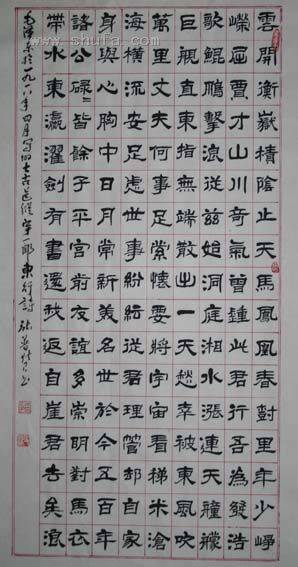 雲開衡嶽積陰止天馬鳳凰春樹里年少崢
嶸屈賈才山川奇氣曾鍾此君行吾為發浩
歌鯤鵬擊浪從茲始洞庭湘水漲連天艟艨
巨艦直東指無端散出一天愁幸被東風吹
萬里丈夫何事足縈懷要將宇宙看稊米滄
海橫流安足慮世事紛紜從君理管却自家
身與心胸中日月常新美名世於今五百年
諸公碌々皆餘子平宮前友誼多崇明對馬衣
帶水東瀛濯劍有書還我返自崖君去矣浪
毛澤東於一九一八年四月寫的七古送縱宇一郎東行詩 書
www.shufa.com